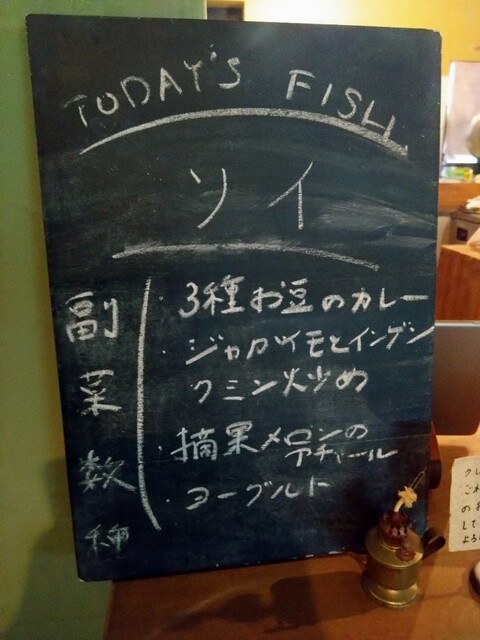 TODAY'S FISH
ソイ
副菜数種
・3種お豆のカレー
・ジャガイモとインゲン
クミン炒め
・摘果メロンの
アチャール
・ヨーグルト